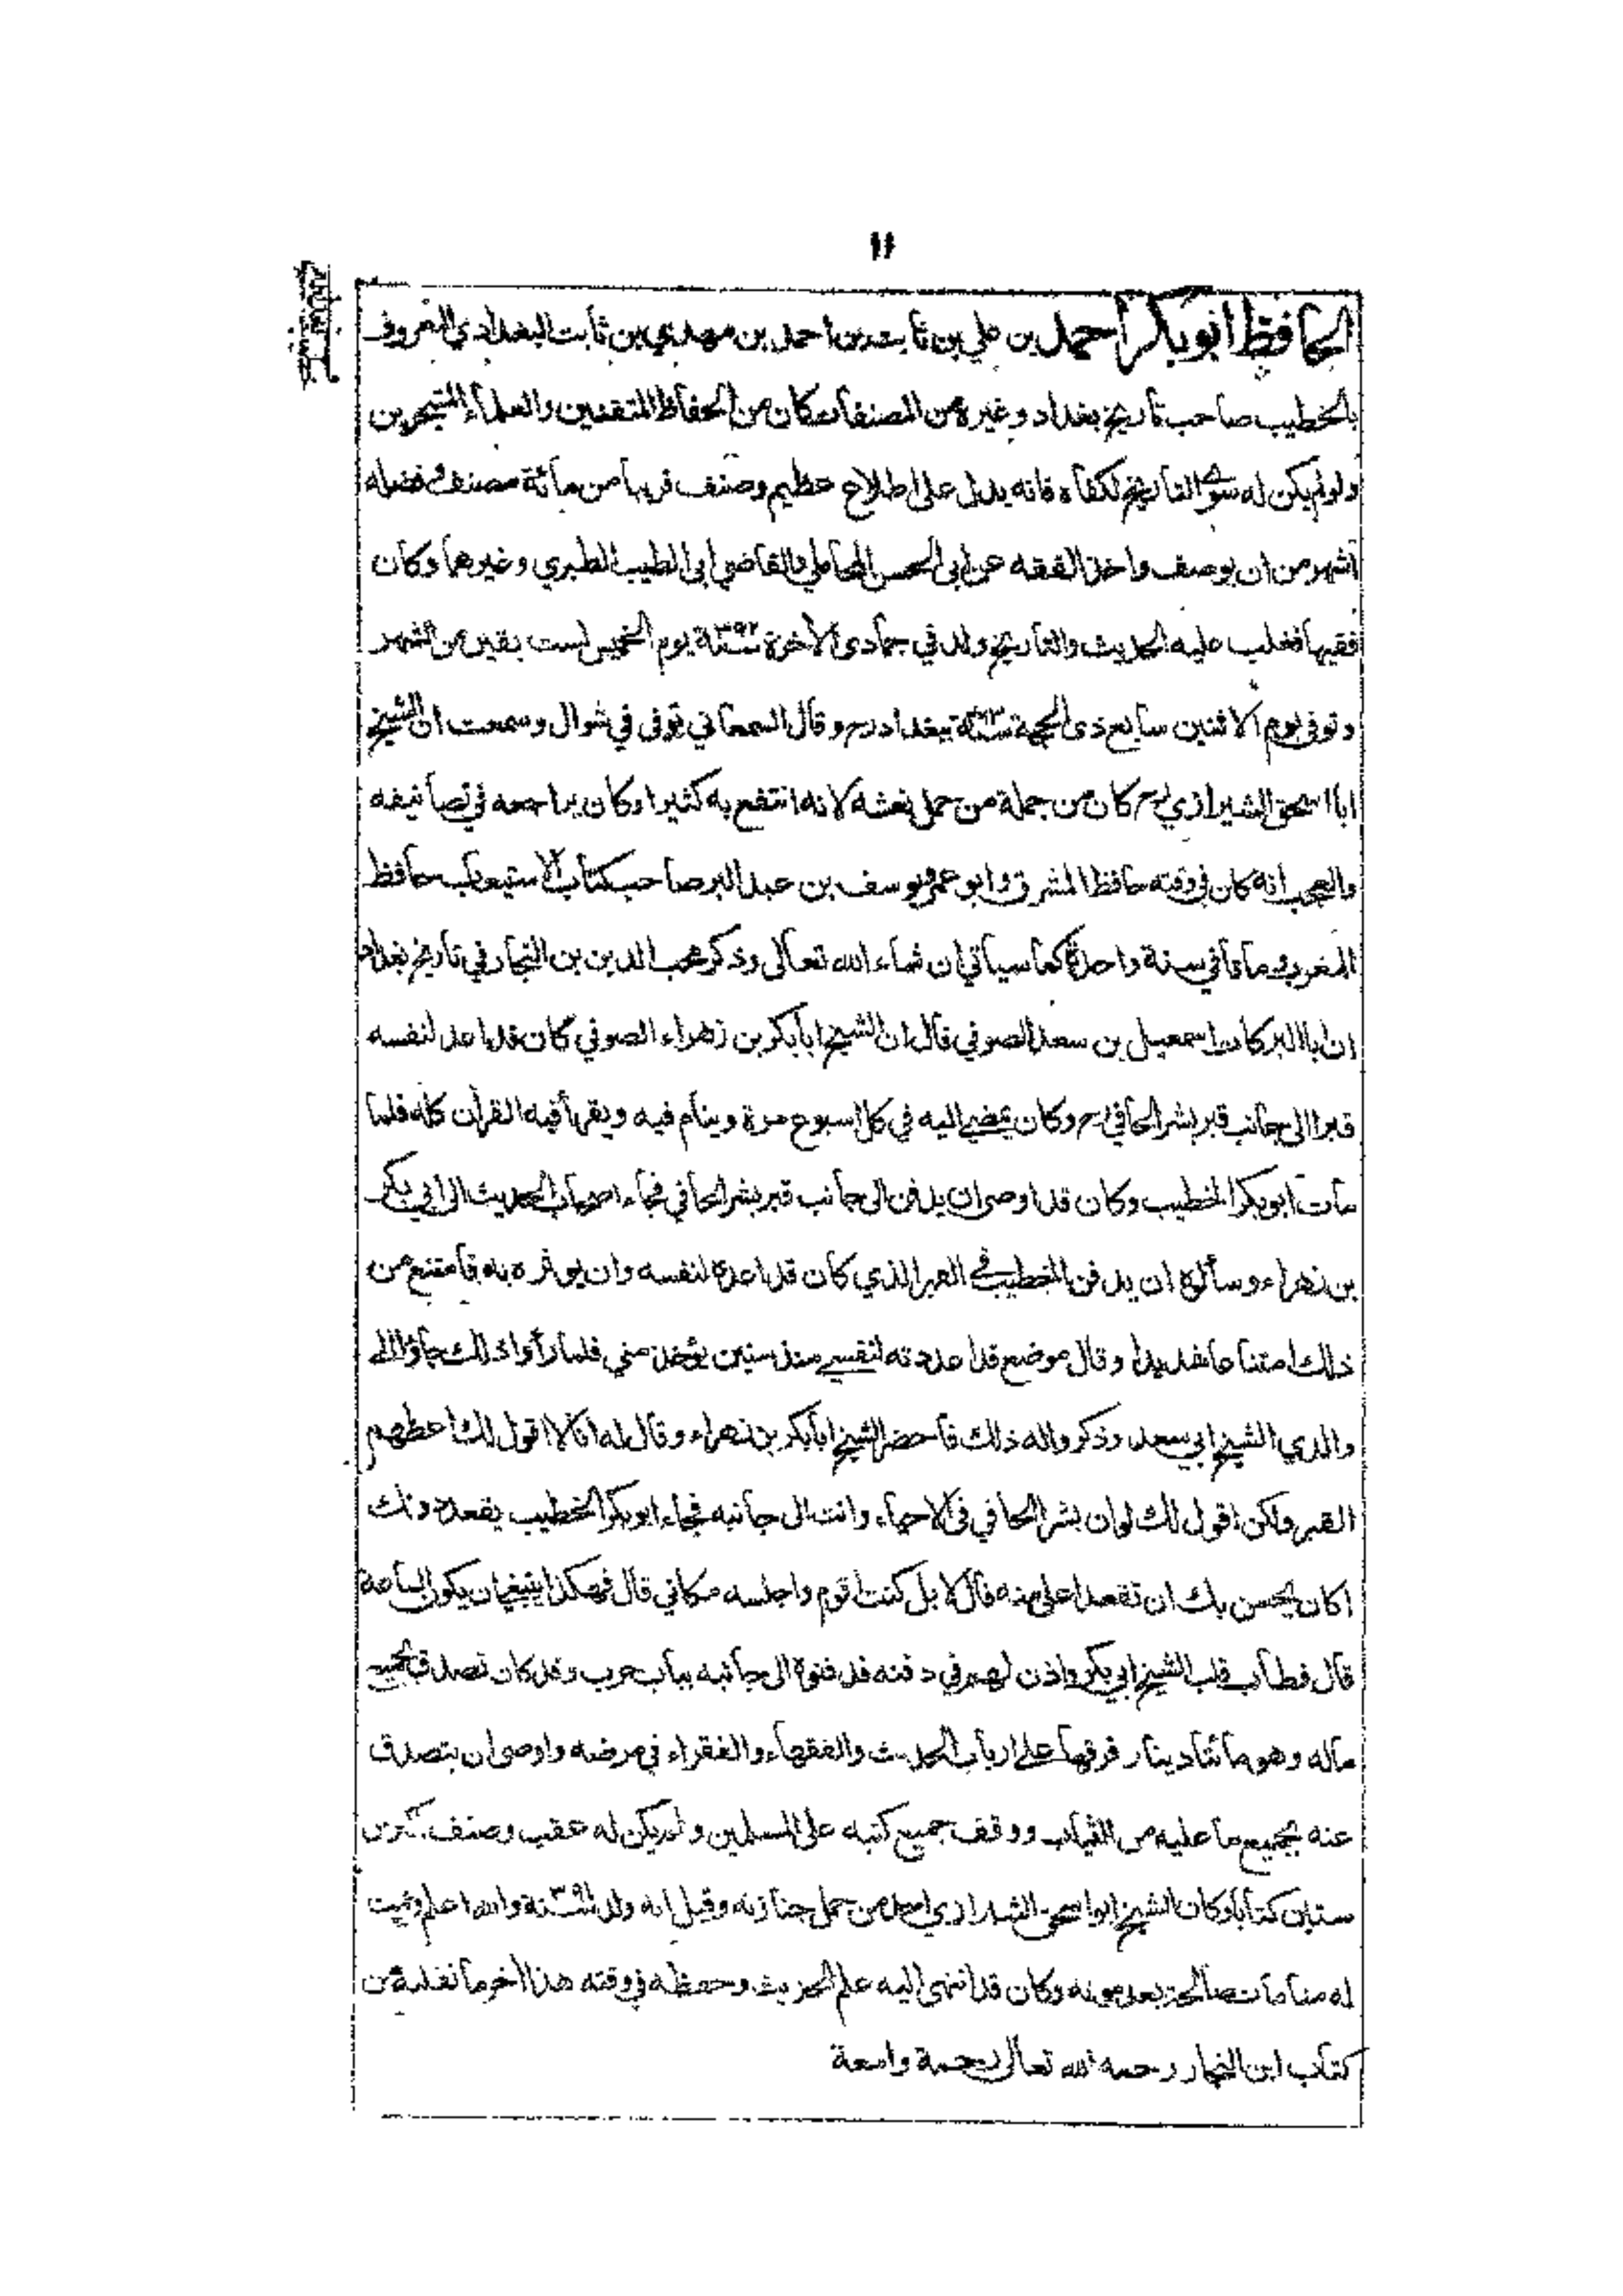 ١١
الحافظ ابو بكر احمد بن علي بن ثابت بن احمد بن مهدي بن ثابت البغدادي المعروف
بالخطيب صاحب تاريخ بغداد وغيره من المصنفات كان من الحفاظ المتقنين والعلماء المتبحرين
ولو لم يكن له سوى التاريخ لكفاه فانه يدل على اطلاع عظيم وصنف قريبا من مائة مصنف وفضله
اشهر من ان يوصف واخذ الفقه عن ابي الحسن المحاملي والقاضي ابي الطيب الطبري وغيرهما وكان
فقيها فغلب عليه الحديث والتاريخ ولد في جمادى الآخرة سنة ٣٩٢ يوم الخميس لست بقين من الشهر
وتوفي يوم الاثنين سابع ذي الحجة سنة ٤٦٣ ببغداد رح وقال السمعاني توفي في شوال وسمعت ان الشيخ
ابا اسحق الشيرازي رح كان من جملة من حمل نعشه لانه انتفع به كثيرا وكان يراجعه في تصانيفه
والعجب انه كان في وقته حافظ المشرق وابو عمر يوسف بن عبد البر صاحب كتاب الاستيعاب حافظ
المغرب وماتا في سنة واحدة كما سياتي ان شاء الله تعالى وذكر محب الدين بن النجار في تاريخ بغداد
ان ابا البركات اسمعيل بن سعد الصوفي قال ان الشيخ ابا بكر بن زهراء الصوفي كان قد اعد لنفسه
قبرا الى جانب قبر بشر الحافي رح وكان يمضي اليه في كل اسبوع مرة وينام فيه ويقرأ فيه القرآن كله فلما
مات ابو بكر الخطيب وكان قد اوصى ان يدفن الى جانب قبر بشر الحافي فجاء اصحاب الحديث الى ابي بكر
بن زهراء وسألوه ان يدفن الخطيب في القبر الذي كان قد اعده لنفسه وان يوثره به فامتنع من
ذلك امتناعا شديدا وقال موضع قد اعددته لنفسي منذ سنين يؤخذ مني فلما رأوا ذلك جاؤا الى
والدي الشيخ ابي سعد وذكروا له ذلك فاحضر الشيخ ابا بكر بن زهراء وقال له انا لا اقول لك اعطهم
القبر ولكن اقول لك لو ان بشر الحافي في الاحياء وانت الى جانبه فجاء ابو بكر الخطيب يقعد دونك
اكان يحسن بك ان تقعد اعلى منه قال لا بل كنت اقوم واجلسه مكاني قال فهكذا ينبغي ان يكون الساعة
قال فطاب قلب الشيخ ابي بكر واذن لهم في دفنه فدفنوه الى جانبه بباب حرب وقد كان تصدق بجميع
ماله وهو مائتا دينار فرقها على ارباب الحديث والفقهاء والفقراء في مرضه واوصى ان يتصدق
عنه بجميع ما عليه من الثياب ووقف جميع كتبه على المسلمين ولم يكن له عقب وصنف اكثر من
ستين كتابا وكان الشيخ ابو اسحق الشيرازي احد من حمل جنازته وقيل انه ولد سنة ٣٩١ والله اعلم ورئيت
له منامات صالحة بعد موته وكان قد انتهى اليه علم الحديث وحفظه في وقته هذا آخر ما نقلته من
كتاب ابن النجار رحمه الله تعالى رحمة واسعة